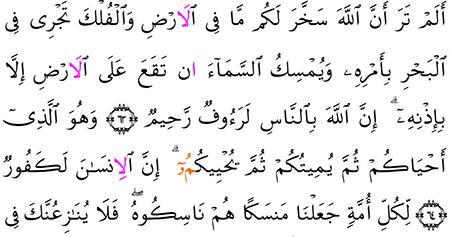 أَلَمْ تَرَ أَنَّ ٱللَّهَ سَخَّرَ لَكُم مَّا فِى ٱلَارْضِ وَٱلْفُلْكَ تَجْرِى فِى
ٱلْبَحْرِ بِأَمْرِهِۦ وَيُمْسِكُ ٱلسَّمَآءَ ان تَقَعَ عَلَى ٱلَارْضِ إِلَّا
بِإِذْنِهِۦٓ ۗ إِنَّ ٱللَّهَ بِٱلنَّاسِ لَرَءُوفٌ رَّحِيمٌ ۝٦٣ وَهُوَ ٱلَّذِىٓ
أَحْيَاكُمْ ثُمَّ يُمِيتُكُمْ ثُمَّ يُحْيِيكُمُۥٓ ۗ إِنَّ ٱلِانسَـٰنَ لَكَفُورٌ
۝٦٤ لِّكُلِّ أُمَّةٍ جَعَلْنَا مَنسَكًا هُمْ نَاسِكُوهُ ۖ فَلَا يُنَـٰزِعُنَّكَ فِى